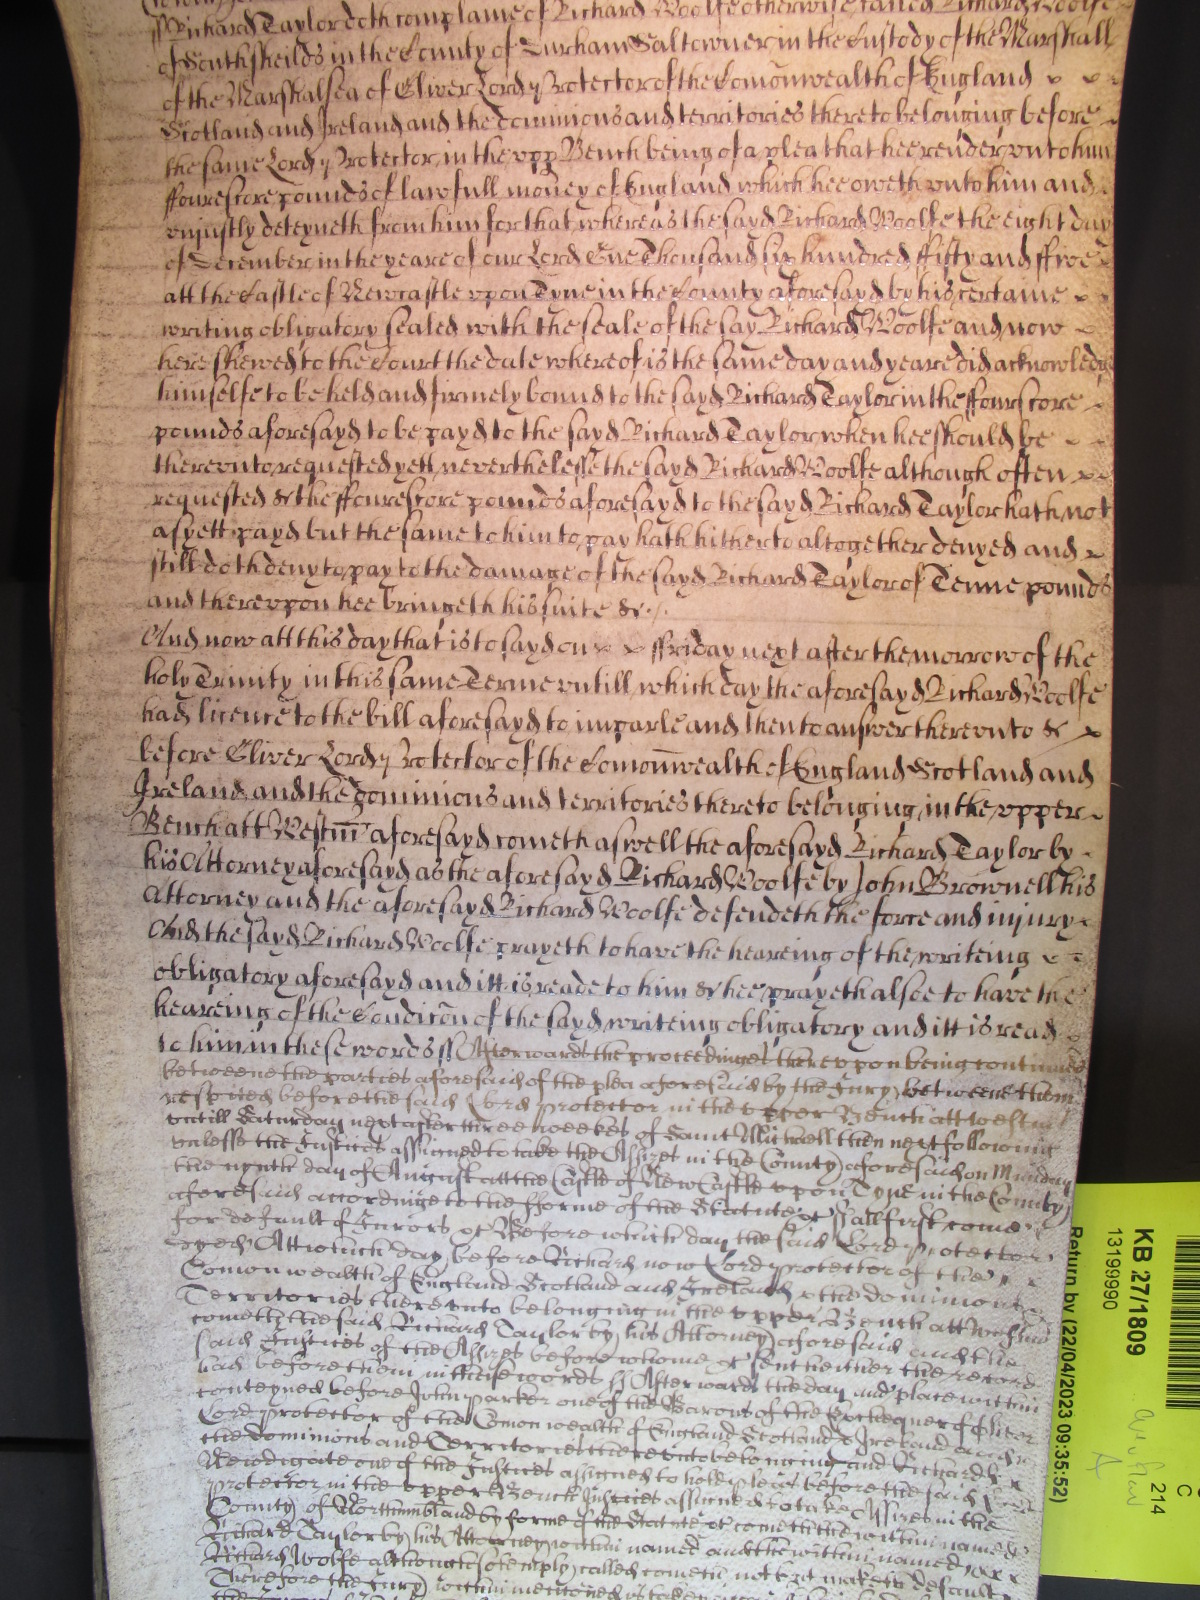 Richard Taylor doth complaine of Richard Woolfe otherwise called Richard Woolfe
of Southsheilds in the County of Durham Saltowner in the Custody of the Marshall
of the Marshalsea of Oliver Lord Protector of the Comonwealth of England
Scotland and Ireland and the dominions and territories thereto belonging before
the same Lord Protector in the upp Bench being of a plea that hee render unto him
ffourescore pounds of lawfull money of England which hee oweth unto him and
unjustly deteyneth from him for that whereas the sayd Richard Woolfe the eight day
of December in the yeare of our Lord One Thousand six hundred ffifty and ffive
att the Castle of Newcastle upon Tyne in the County aforesayd by his certaine
writing obligatory sealed with the seale of the say Richard Woolfe and now
here shewed to the Court the date whereof is the same day and yeare did acknowledge
himselfe to be held and firmely bound to the sayd Richard Taylor in the ffourscore
pounds aforesayd to be payd to the sayd Richard Taylor when hee should be
thereunto requested yett neverthelesse the sayd Richard Woolfe although often
requested &c the ffourescore pounds aforesayd to the sayd Richard Taylor hath not
as yett payd but the same to him to pay hath hitherto altogether denyed and
still doth deny to pay to the damage of the sayd Richard Taylor of Tenne pounds
and thereupon hee bringeth his suite &c
And now att this day that is to say on ffriday next after the morrow of the
holy Trinity in this same Terme untill which day the aforesayd Richard Woolfe
had licence to the bill aforesayd to imparle and then to answer thereunto &c
before Oliver Lord Protector of the Comonwealth of England Scotland and
Ireland and the dominions and territories thereto belonging in the upper
Bench att Westm aforesayd cometh aswell the aforesayd Richard Taylor by
his Attorney aforesayd as the aforesayd Richard Woolfe by John Brownell his
Attorney and the aforesayd Richard Woolfe defendeth the force and injury
And the sayd Richard Woolfe prayeth to have the heareing of the writeing
obligatory aforesayd and itt is reade to him &c hee prayeth alsoe to have the
heareing of the Condicon of the sayd writeing obligatory and itt is read
to him in these words ss Afterwards the proceedings thereupon being continued
betweene the parties aforesaid of the plea aforesaid by the Jury betweene them
respited before the said Lord protector in the upper Bench att Westm
untill Saturday next after three weekes of Saint Michaell then next following
unlesse the Justices assigned to take the Assizes in the County aforesaid on Munday
the nynth day of August att the Castle of New Castle upon Tyne in the County
aforesaid accordinge to the fforme of the Statute &c shall first come
for default of Jurors &c Before which day the said Lord protector
dyed Att which day before Richard now Lord protector of the
Comonwealth of England Scotland and Ireland & the dominions
Territories thereunto belonging in the upper Bench att Westm
cometh the said Richard Taylor by his Attorney aforesaid and the
said Justices of the Assizes before whome &c sent hether the record
had before them in these words ss Afterwards the day and place within
conteyned before John parker one of the Barons of the Exchequer of Oliver
Lord protector of the Comon wealth of England Scotland & Ireland and
the dominions and Territories thereunto belonging and Richard
Newdigate one of the Justices assigned to hold pleas before the said Lord
protector in the upper Bench Justices assigned to take Assizes in the
County of Northumbland by forme of the Statute &c cometh the within named
Richard Taylor by his Attorney within named and the within named
Richard Wolfe although solemply called cometh not but maketh default
Therefore the Jury within mencioned is taken
KB 27/1809
13199990
Return by (22/04/2023 09:35:52)
C
214
A